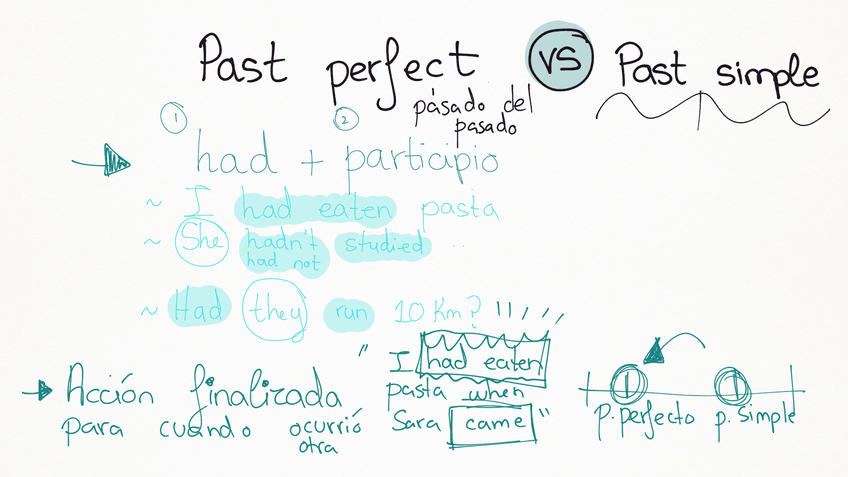 Past perfect VS Past simple
pásado del
pasado
1 2
had + participio
~ I had eaten pasta
~ She hadn't studied ..
had not
~ Had they run 10 Km?
Acción finalizada
para cuando ocurrió
otra
" I had eaten
pasta when
Sara came "
p. perfecto p. simple